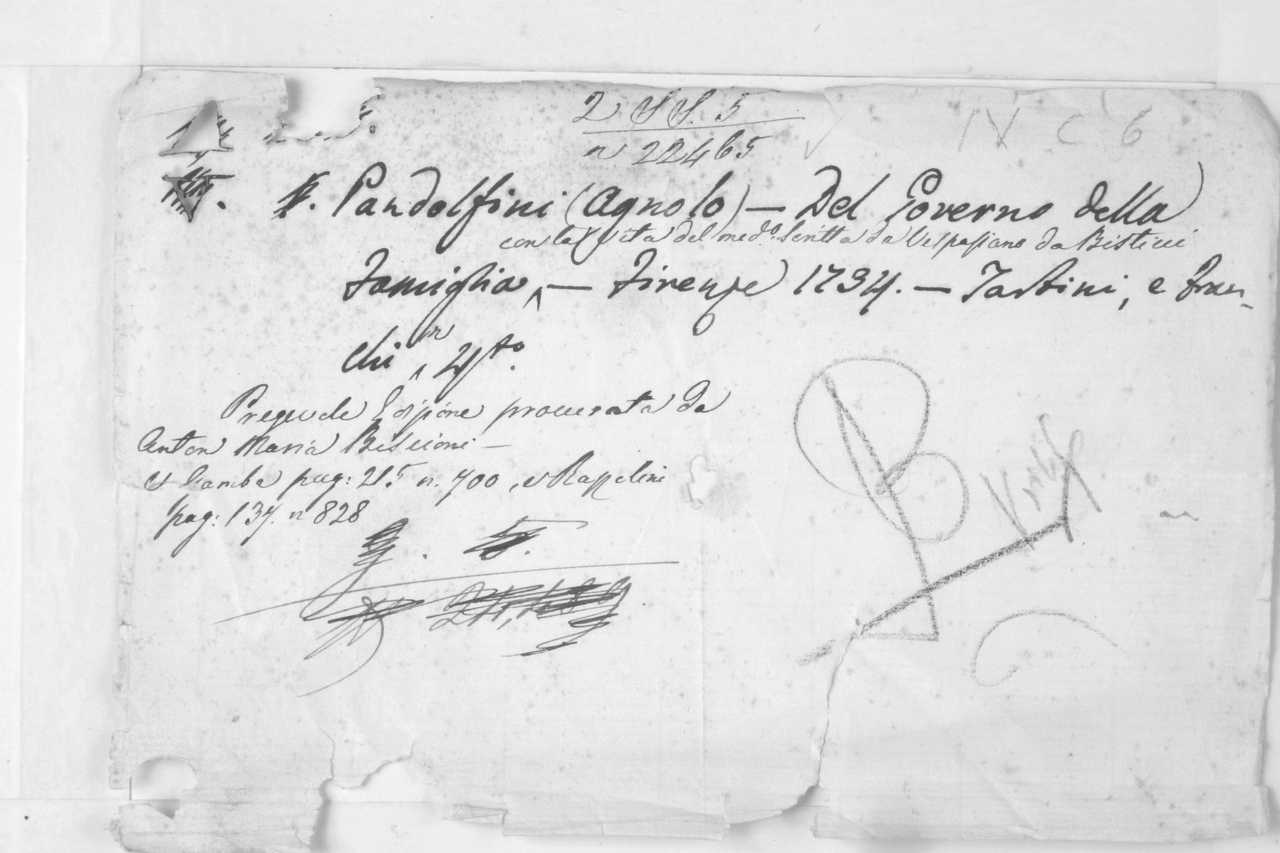 2 SS. 5
n 22465
IX C 6
P. Pandolfini (Agnolo) — Del Governo della
con la Vita del med.o scritta da Vespasiano da Bisticci
Famiglia, — Firenze 1734. — Tartini, e Fran-
chi in 4to.
Pregievole Edizione procurata da
Anton Maria Biscioni —
Gamba pag: 215 n. 700, e Razzolini
pag: 137. n 828
B